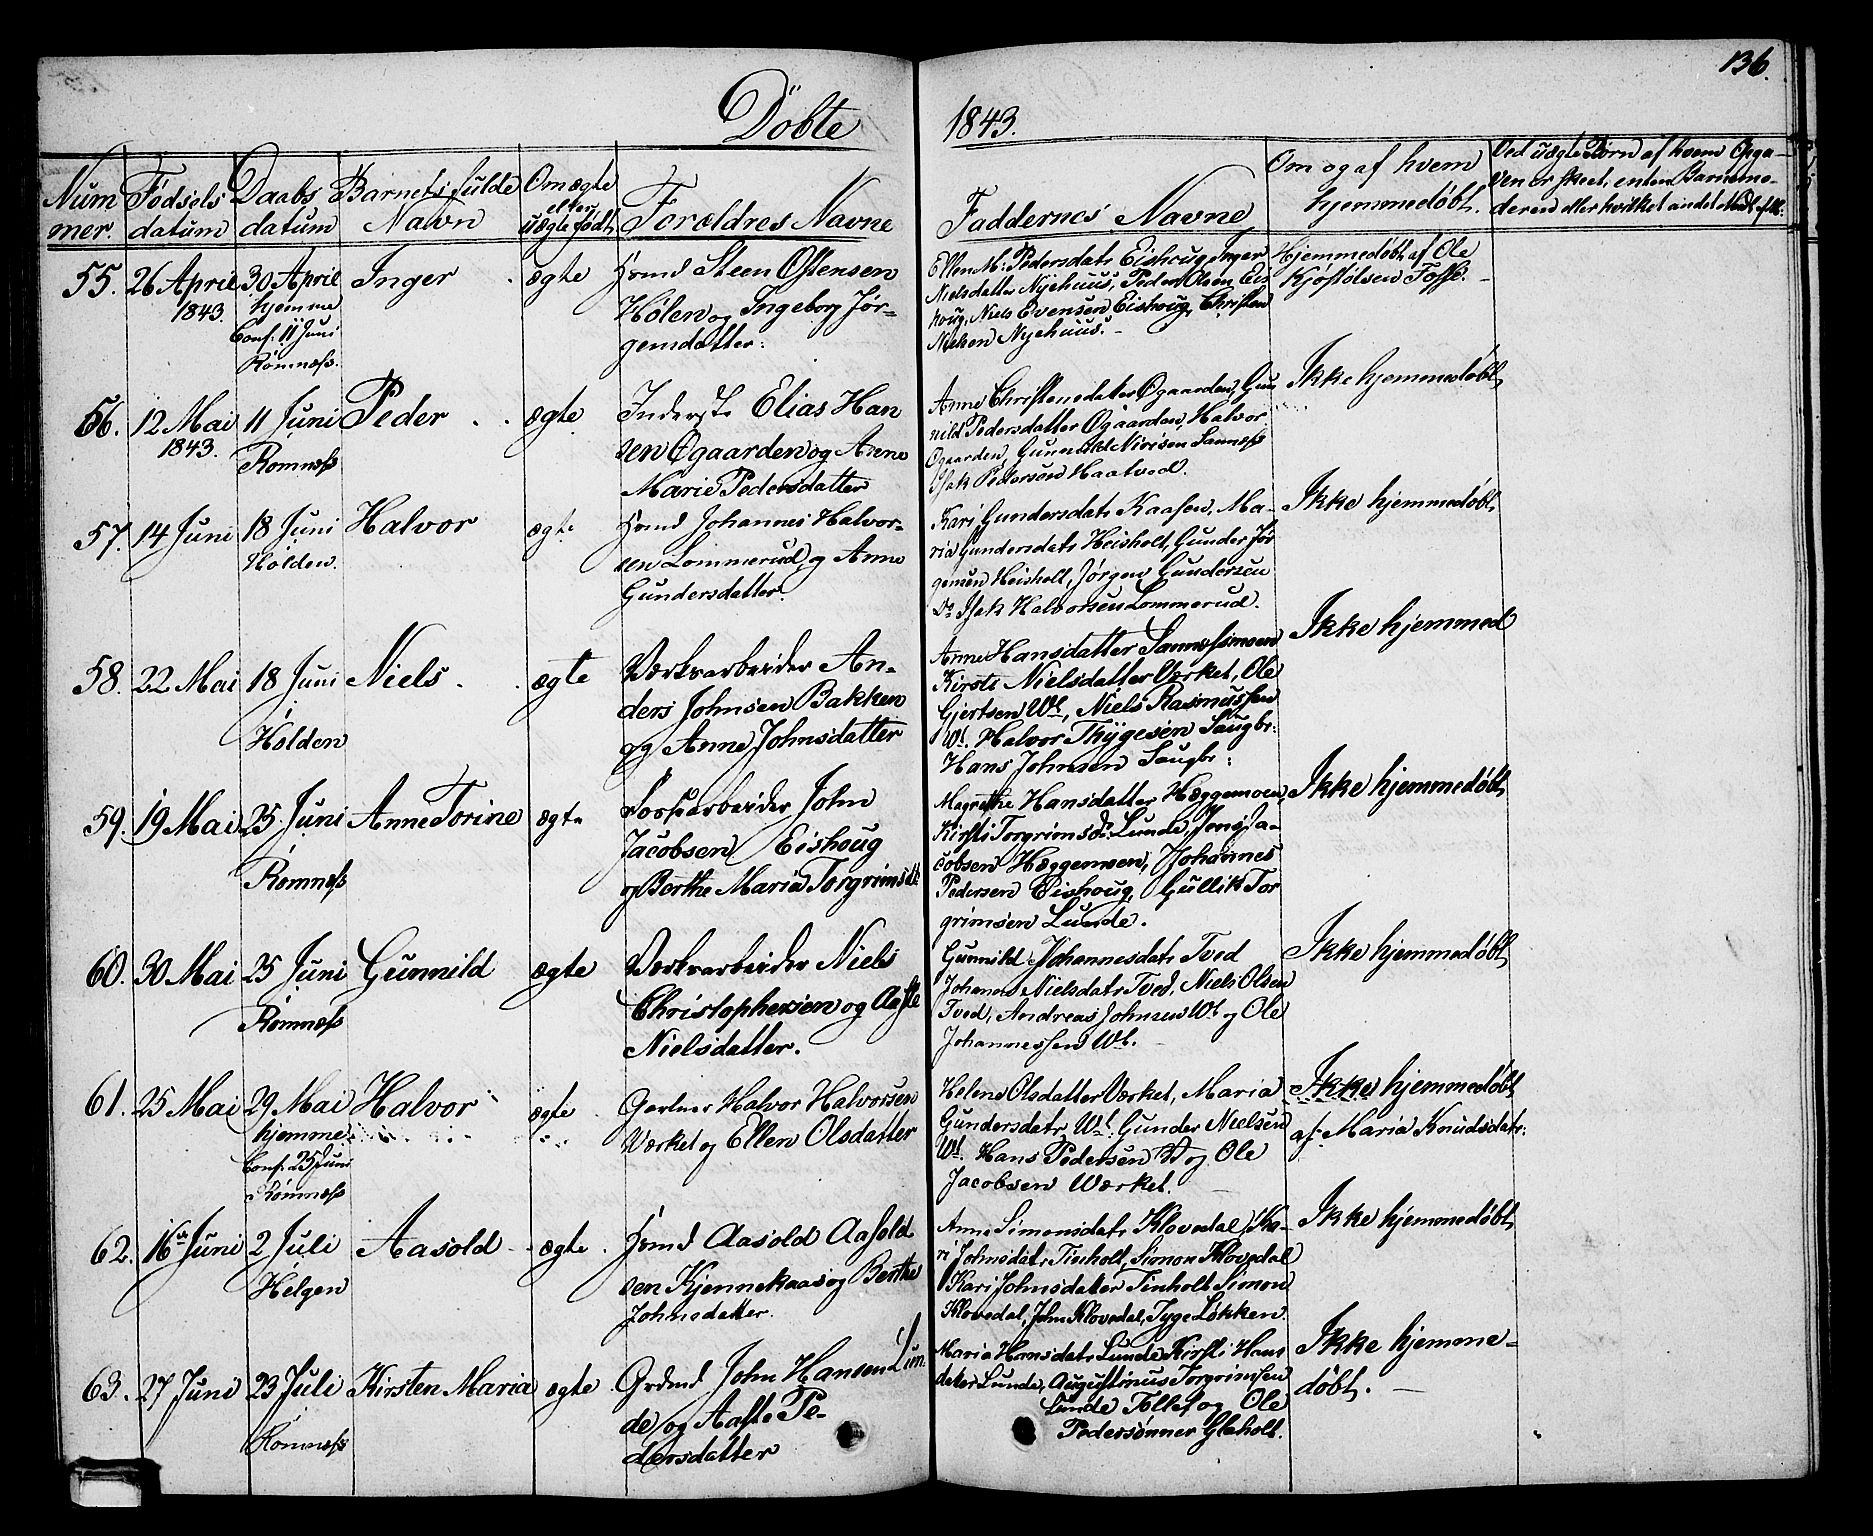 136.
Döbte 1843.
Num mer.
Fødsels datum
Daabs datum
Barnets fulde Navn
Om ægte eller uægte født
Forældres Navne
Faddernes Navne
Om og af hvem hjemmedøbt.
Ved uægte Børn af hvem Opga-
ven er skeet, enten Barnemo-
deren eller hvilket andet
55.
26 April
1843.
30 April
hjemme
Conf. 11 Juni
Romnæss.
Inger
ægte
Grmd Steen Ostensen
Hølen og Ingeborg Jør-
gensdatter.
Ellen M: Pedersdatr Eishoug, Inger
Nielsdatter Nyehuus, Peder Olsen Eis
houg, Niels Evensen Eishoug, Christen
Nielsen Nyehuus.
Hjemmedøbt af Ole
Kjøstolsen
56.
12 Mai
1843.
11 Juni
Romnæss
Peder
ægte
Inderste Elias Han
sen Øgaarden og Anne
Marie Pedersdatter
Anne Christensdatter Øgaarden, Gun
nild Pedersdatter Øgaarden, Halvor
Øgaarden, Gunnuld Nirisen Sannæss
Isak Pedersen Haatved.
Ikke hjemmedøbt
57.
14 Juni
18 Juni
Holden.
Halvor
ægte
Grmd Johannes Halvor-
sen Lommerud og Anne
Gundersdatter.
Kari Gundersdatr Kaasen, Ma-
ria Gundersdatr Heisholt, Gunder Jør
gensen Heisholt, Jørgen Gundersen
Do Isak Halvorsen Lommerud.
Ikke hjemmedøbt
58.
22 Mai
18 Juni
Holden
Niels
ægte
Værksarbeider An-
ders Johnsen Bakken
og Anne Johnsdatter
Anne Hansdatter Sannæssmoen
Kirsti Nielsdatter Værket, Ole
Gjertsen Wt, Niels Rasmussen
Wt. Halvor Thygesen Saugbr:
Hans Johnsen Saugbr:
Ikke hjemmed
59.
19 Mai
25 Juni
Romnæss
Anne Torine
ægte
John
Jacobsen Eishoug
og Berthe Maria Torgrimsd
Magrethe Hansdatter Hæggemoen,
Kirsti Torgrimsd. Lunde, Jens Ja-
cobsen Hæggemoen, Johannes
Pedersen Eishoug, Gullik Tor
grimsen Lunde.
Ikke hjemmedøbt
60.
30 Mai
25 Juni
Romnæss
Gunnild
ægte
Værksarbeider Niels
Christophersen og Aaste
Nielsdatter.
Gunnild Johannesdatr Tved
Johanne Nielsdatr Tved, Niels Olsen
Tved, Andreas Johnsen Wt og Ole
Johannessen Wt.
Ikke hjemmedøbt
61.
25 Mai
29 Mai
hjemme
Conf. 25 Juni
Romnæss
Halvor
ægte
Gartner Halvor Halvorsen
Værket og Ellen Olsdatter
Helene Olsdatter Værket, Maria
Gundersdatr Wt. Gunder Nielsen
Wt. Hans Pedersen Wt og Ole
Jacobsen Værket.
Ikke hjemmedøbt
af Maria Knudsdatr:
62.
16 Juni
2 Juli
Helgen
Aasold
ægte
Grmd Aasold Aasold
sen Kjennekaas og Berthe
Johnsdatter.
Anne Simonsdatr Klovedal, Ka-
ri Johnsdatr Tinholt, Simon Klovedal
Kari Johnsdatter Tinholt Simon
Klovedal, John Klovedal, Tyge Løkken.
Ikke hjemmedøbt
63.
27 Juni
23 Juli
Romnæss
Kirsten Maria
ægte
Grdmd John Hansen Lun
de og Aaste Pe-
dersdatter
Maria Hansdatr Lunde, Kirsti Hans
datter Lunde, Augustinus Torgrimsen
Lunde Tollef og Ole
Pedersønner Glaholt.
Ikke hjemme-
døbt.